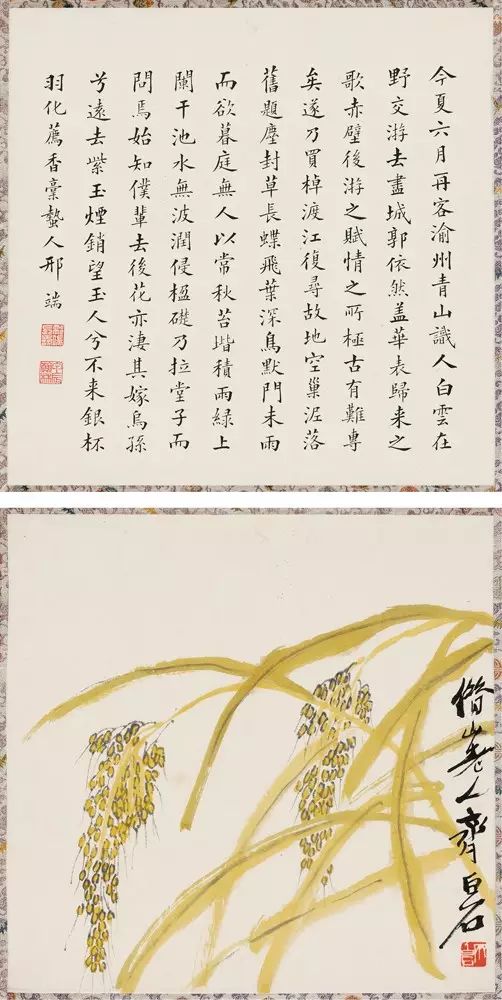 今夏六月再客渝州青山識人白雲在
野交游去盡城郭依然蓋華表歸来之
歌赤壁後游之賦情之所極古有難專
矣遂乃買棹渡江復尋故地空巢泥落
舊題塵封草長蝶飛葉深鳥默門未雨
而欲暮庭無人以常秋苔堦積雨緑上
闌干池水無波潤侵楹礎乃拉堂子而
問焉始知僕輩去後花亦淒其嫁烏孫
兮遠去紫玉煙銷望玉人兮不来銀杯
羽化薦香稾蟄人邢端
借山老人齊白石